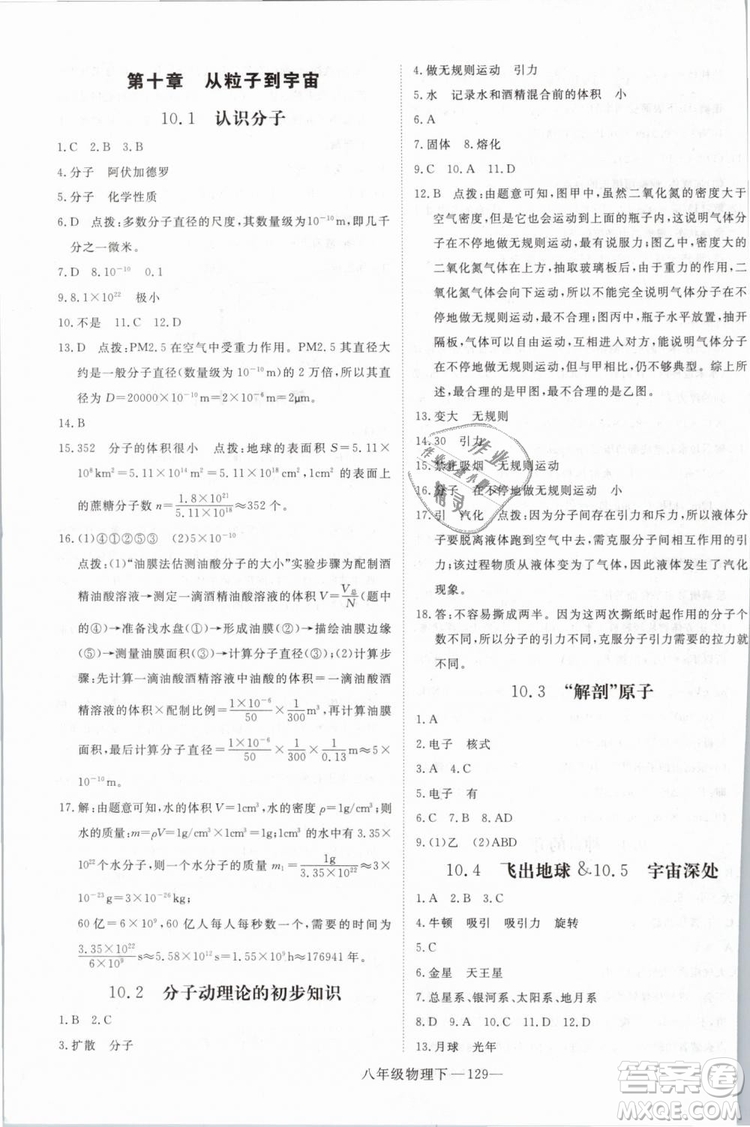 第十章 从粒子到宇宙
10.1 认识分子
1.C 2.B 3.B
4.分子 阿伏加德罗
5.分子 化学性质
6.D 点拨：多数分子直径的尺度，其数量级为10⁻¹⁰m，即几千
分之一微米。
7.D 8.10⁻¹⁰ 0.1
9.8.1×10²² 极小
10.不是 11.C 12.D
13.D 点拨：PM2.5在空气中受重力作用。PM2.5的直径大
约是一般分子直径(数量级为10⁻¹⁰m)的2万倍，所以其直
径为D=20000×10⁻¹⁰m=2×10⁻⁶m=2μm。
14.B
15.352 分子的体积很小 点拨：地球的表面积S=5.11×
10⁸km²=5.11×10¹⁴m²=5.11×10¹⁸cm²，1cm²上排列
的蔗糖分子数=1.8×10²¹/5.11×10¹⁸≈352个。
16.(1)④①②⑤③
点拨：(1)“油膜法估测油酸分子的大小”实验步骤为配制酒
精油酸溶液→测定一滴酒精油酸溶液的体积V=V总/N(题中
的④)→准备浅水盘(①)→形成油膜(②)→描绘油膜边缘
(⑤)→测量油膜面积(③)→计算分子直径。(2)计算步
骤：先计算一滴油酸酒精溶液中油酸的体积=一滴油酸酒
精溶液的体积×配制比例=1×10⁻⁶/50×1/300m³，再计算油膜
面积，最后计算分子直径=1×10⁻⁶/50×1/300×1/0.0133m≈5×
10⁻⁹m。
17.解：由题意可知，水的体积V=1cm³，水的密度ρ=1g/cm³，
水的质量：m=ρV=1g/cm³×1cm³=1g，m₁=1g/3.35×10²²≈3×
10⁻²³g=3×10⁻²⁶kg；
60亿=6×10⁹，60亿人每人每秒数一个需要的时间为
3.35×10²²/6×10⁹s≈5.58×10¹²s=1.55×10⁹h≈176941年。
10.2 分子动理论的初步知识
1.B 2.C
3.扩散 分子
4.做无规则运动 引力
5.水 记录水和酒精混合前的体积 小
6.A
7.固体 8.熔化
9.C 10.A 11.D
12.B 点拨：由题意可知，图甲中，虽然二氧化氮的密度大于
空气密度，但气体会运动到上面的瓶子内，这说明气体分
子在不停地做无规则运动，较有说服力；图乙中，密度大的
二氧化氮气体在上方，抽取玻璃板后，由于重力的作用，二
氧化氮气体会向下运动，因此不能有力地证明气体分子在
不停地做无规则运动，最不合理；图丙中，瓶子水平放置，抽开
隔板，气体由于运动，互相进入对方，能说明气体分子在不
停地做无规则运动，但与甲相比，仍不够典型。综上所
述，最合理的是甲图，最不合理的是乙图。
13.变大 无规则
14.30 引力
15.禁止吸烟 无规则运动
16.分子 在不停地做无规则运动 小
17.引 汽化 点拨：因为分子间存在引力和斥力，所以液体分
子要脱离液体跑到空气中去，需克服分子间的引力做功；
该过程物质从液体变为了气体，所以液体发生了汽化
现象。
18.答：不容易撕成两半。因为这两次撕纸时起作用的分子个
数不同，所以分子的引力不同，克服分子引力需要的拉力就
不同。
10.3 “解剖”原子
1.A
2.电子 核式
3.A 4.C
5.电子 有
6.C 7.B 8.AD
9.(1)乙 (2)ABD
10.4 飞出地球 &10.5 宇宙深处
1.A 2.B 3.C
4.牛顿 吸引 吸引力 旋转
5.C
6.金星 天王星
7.总星系、银河系、太阳系、地月系
8.D 9.D 10.B 11.A 12.D
13.月球 光年
八年级物理下—129—
答案圈
MXQE.COM